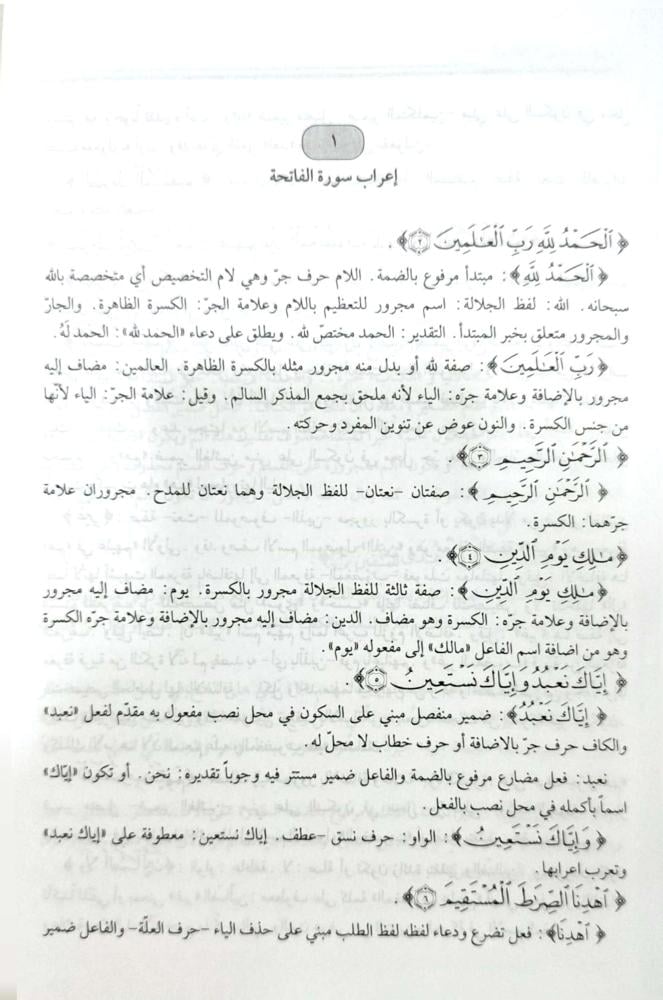 ١
إعراب سورة الفاتحة
﴿ ٱلْحَمْدُ لِلَّهِ رَبِّ ٱلْعَـٰلَمِينَ ٢﴾.
﴿ ٱلْحَمْدُ لِلَّهِ﴾: مبتدأ مرفوع بالضمة. اللام حرف جرّ وهي لام التخصيص أي متخصصة بالله
سبحانه. الله: لفظ الجلالة: اسم مجرور للتعظيم باللام وعلامة الجرّ: الكسرة الظاهرة. والجارّ
والمجرور متعلق بخبر المبتدأ. التقدير: الحمد مختصّ لله. ويطلق على دعاء «الحمد لله»: الحمد لَهُ.
﴿رَبِّ ٱلْعَـٰلَمِينَ﴾: صفة لله أو بدل منه مجرور مثله بالكسرة الظاهرة. العالمين: مضاف إليه
مجرور بالإضافة وعلامة جرّه: الياء لأنه ملحق بجمع المذكر السالم. وقيل: علامة الجرّ: الياء لأنّها
من جنس الكسرة. والنون عوض عن تنوين المفرد وحركته.
﴿ ٱلرَّحْمَـٰنِ ٱلرَّحِيمِ ٣﴾.
﴿ ٱلرَّحْمَـٰنِ ٱلرَّحِيمِ ﴾: صفتان -نعتان- للفظ الجلالة وهما نعتان للمدح. مجروران علامة
جرّهما: الكسرة.
﴿مَـٰلِكِ يَوْمِ ٱلدِّينِ ٤﴾.
﴿مَـٰلِكِ يَوْمِ ٱلدِّينِ﴾: صفة ثالثة للفظ الجلالة مجرور بالكسرة. يوم: مضاف إليه مجرور
بالإضافة وعلامة جرّه: الكسرة وهو مضاف. الدين: مضاف إليه مجرور بالإضافة وعلامة جرّه الكسرة
وهو من اضافة اسم الفاعل «مالك» إلى مفعوله «يوم».
﴿ إِيَّاكَ نَعْبُدُ وَإِيَّاكَ نَسْتَعِينُ ٥﴾.
﴿ إِيَّاكَ نَعْبُدُ﴾: ضمير منفصل مبني على السكون في محل نصب مفعول به مقدّم لفعل «نعبد»
والكاف حرف جرّ بالاضافة أو حرف خطاب لا محلّ له.
نعبد: فعل مضارع مرفوع بالضمة والفاعل ضمير مستتر فيه وجوباً تقديره: نحن. أو تكون «إيّاك»
اسماً بأكمله في محل نصب بالفعل.
﴿ وَإِيَّاكَ نَسْتَعِينُ﴾: الواو: حرف نسق -عطف. إياك نستعين: معطوفة على «إياك نعبد»
وتعرب اعرابها.
﴿ ٱهْدِنَا ٱلصِّرَٰطَ ٱلْمُسْتَقِيمَ ٦﴾.
﴿ ٱهْدِنَا﴾: فعل تضرع ودعاء لفظه لفظ الطلب مبني على حذف الياء -حرف العلّة- والفاعل ضمير